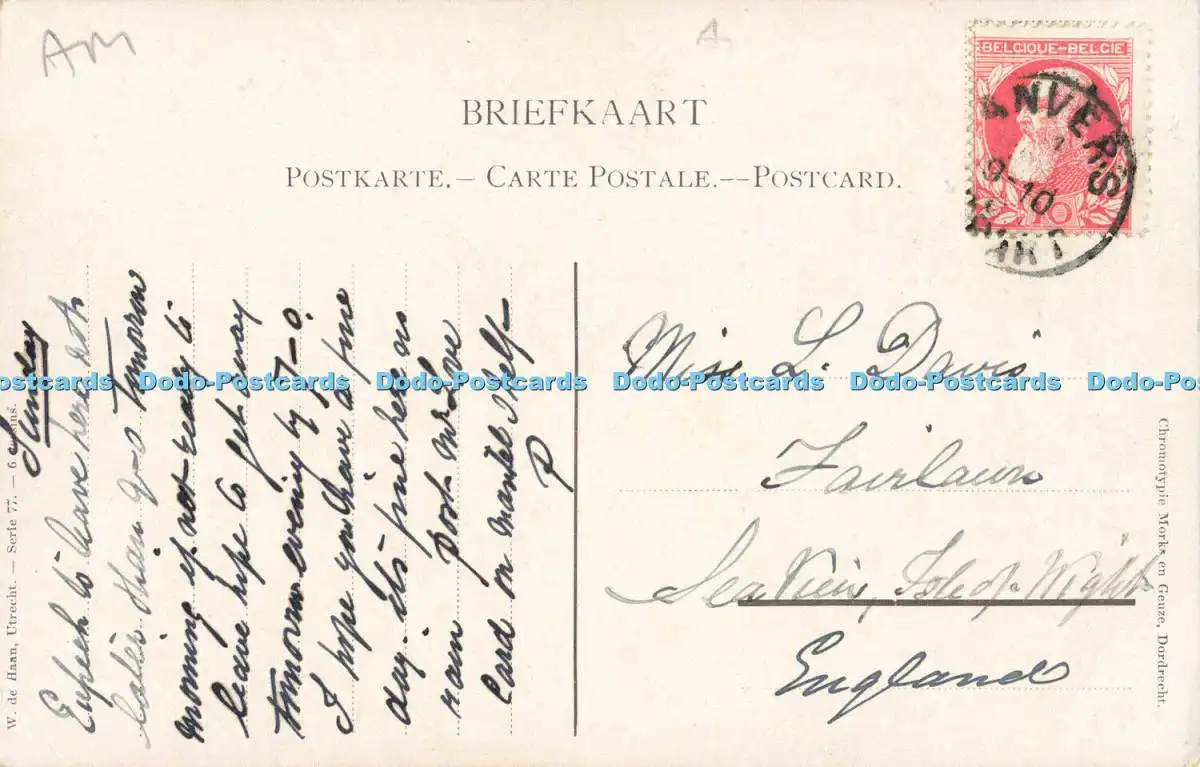 Am
A
BELGIQUE-BELGIE
ANVERS
9-10
10
BRIEFKAART
POSTKARTE.— CARTE POSTALE.—-POSTCARD.
Sunday
Expect to leave here not
later than 9-0 tomorrow
morning if not ready to
leave hope to get away
tomorrow evening by 7-0.
I hope you have a fine
day. its fine here no
rain post Mr Love
Card on mantel shelf
P
Miss L. Davis
Fairlawn
Sea View, Isle of Wight
England
W. de Haan, Utrecht. — Serie 77. — 6
Chromotypie Morks en Geuze, Dordrecht.
Dodo-Postcards Dodo-Postcards Dodo-Postcards Dodo-Postcards Dodo-Postcards